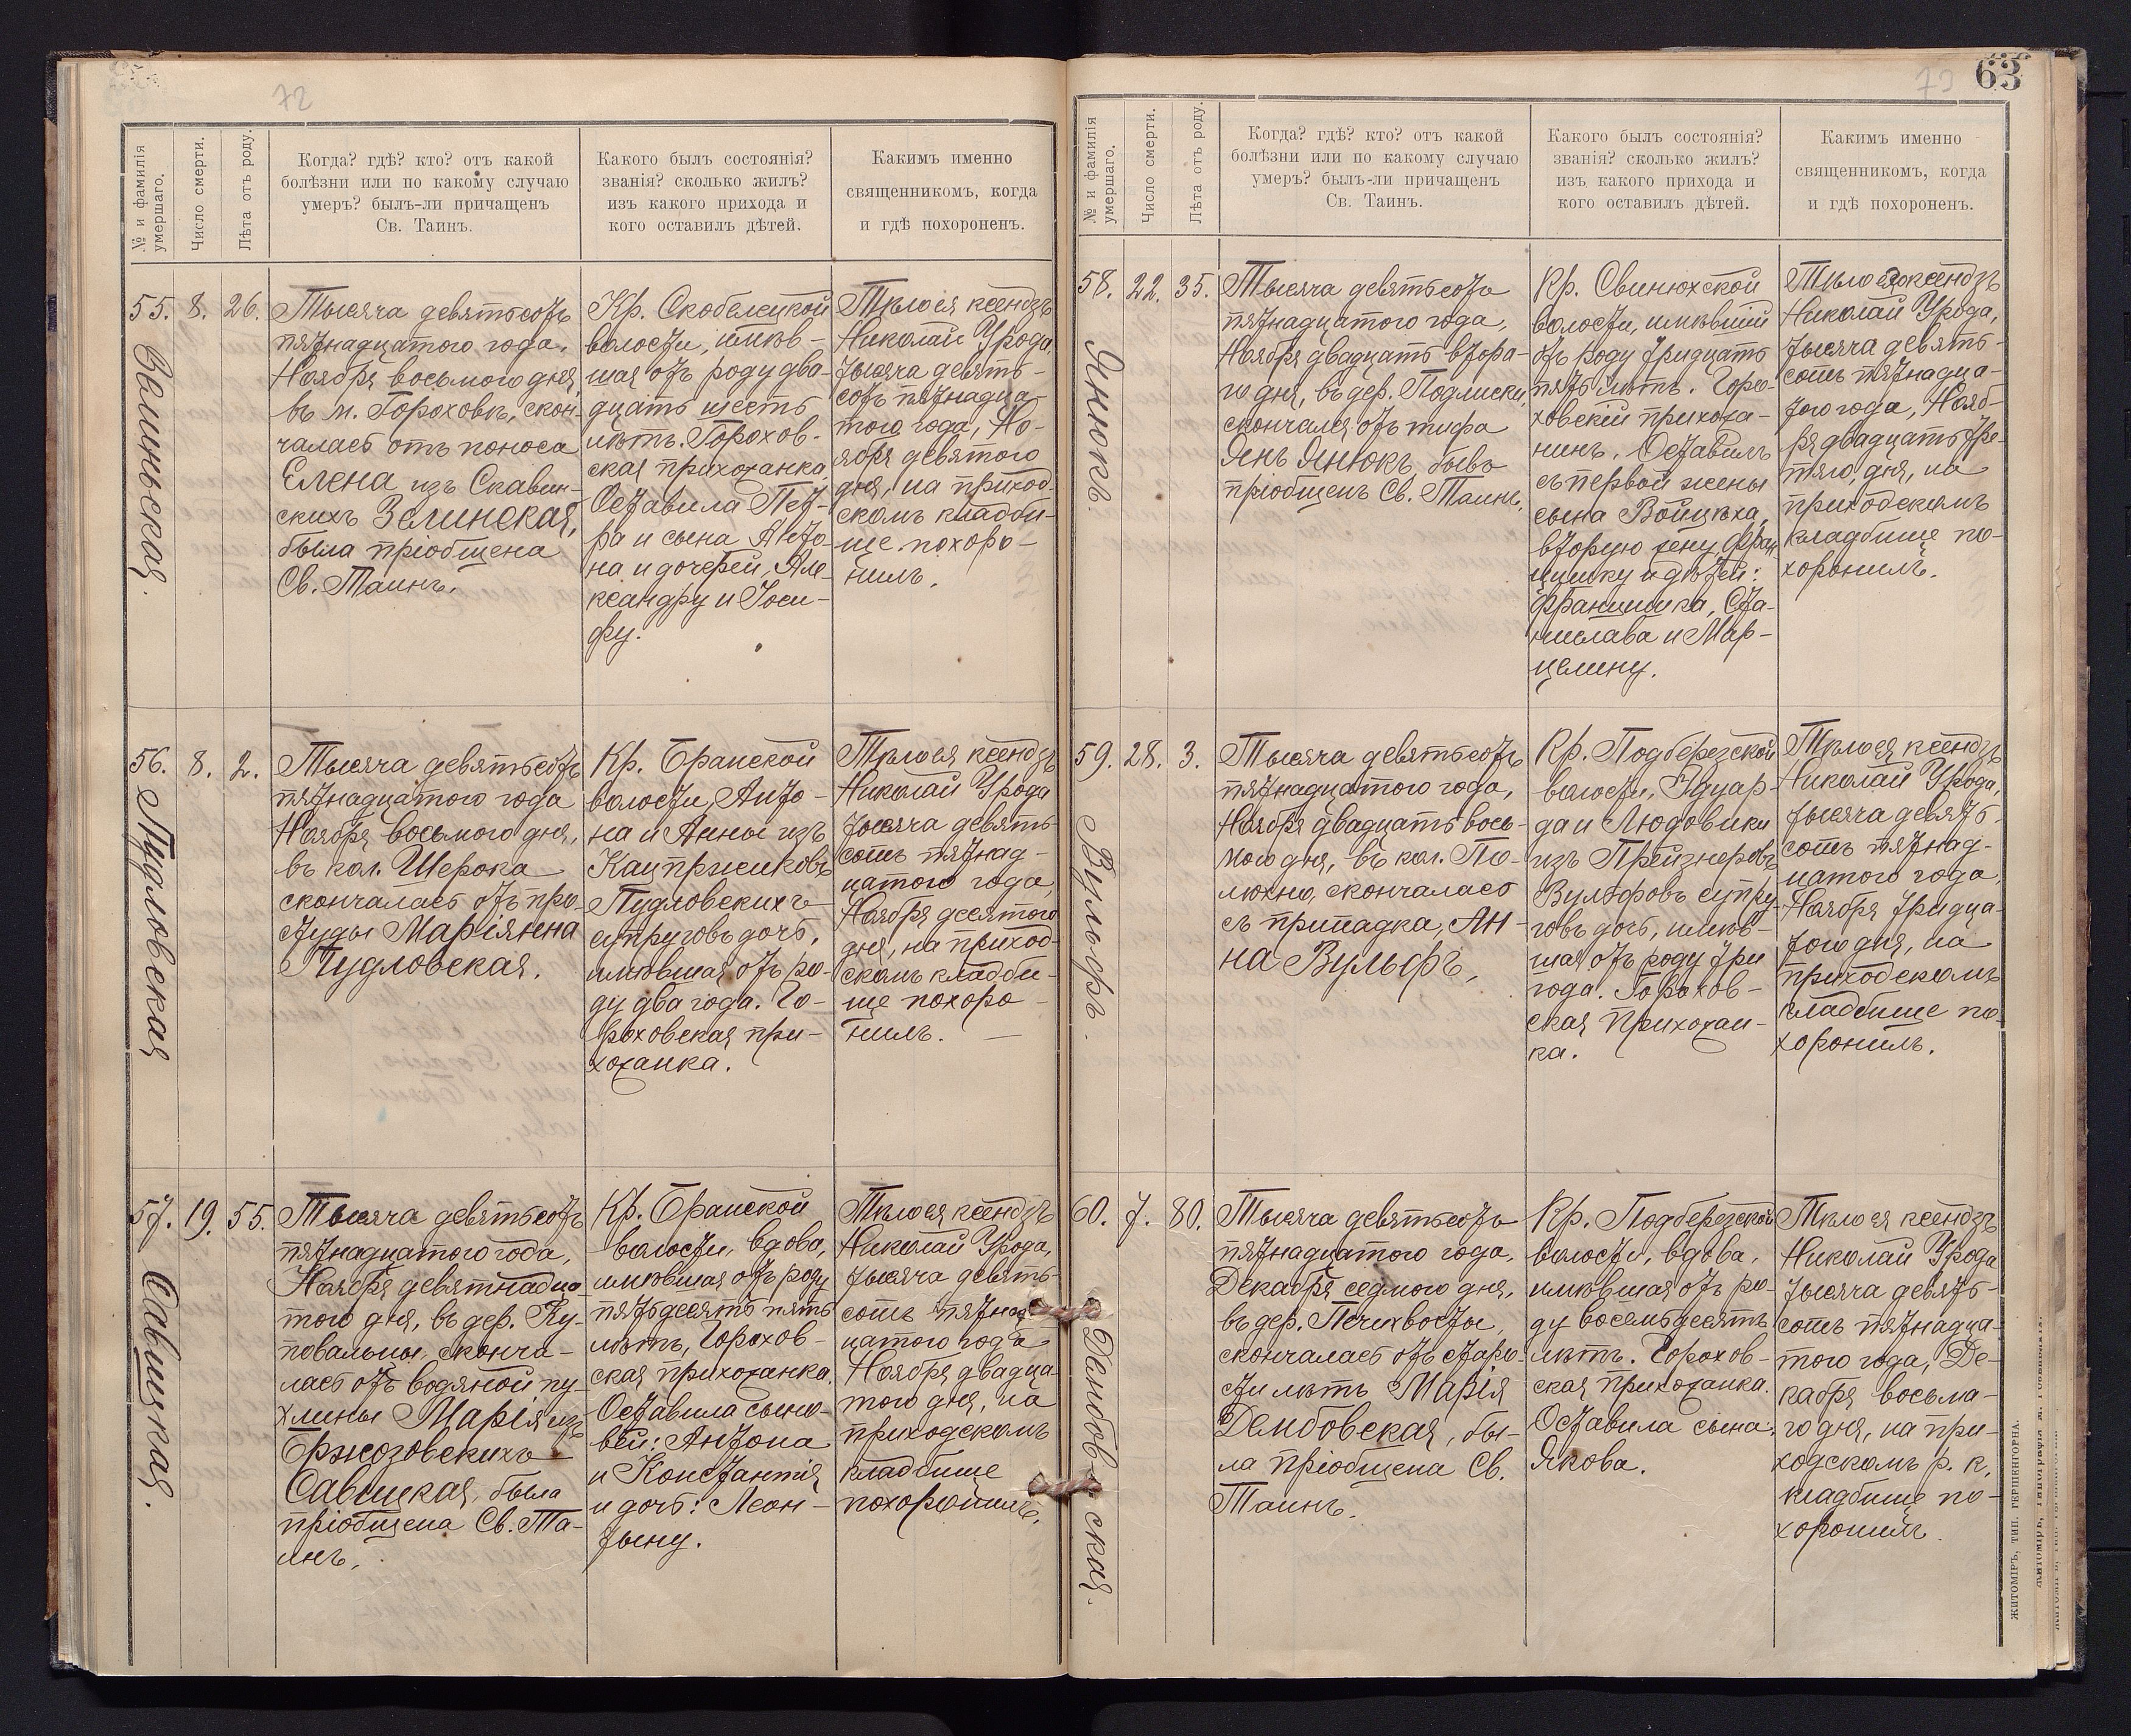 72
№ и фамилія
умершаго.
Число смерти.
Лѣта отъ роду.
Когда? гдѣ? кто? отъ какой
болѣзни или по какому случаю
умеръ? былъ-ли причащенъ
Св. Таинъ.
Какого былъ состоянія?
званія? сколько жилъ?
изъ какого прихода и
кого оставилъ дѣтей.
Какимъ именно
священникомъ, когда
и гдѣ похороненъ.
55.
Зелиньская.
8.
26.
Тысяча девятьсотъ
пятнадцатого года,
Ноября восьмого дня,
въ м. Гороховѣ, скон-
чалась отъ поноса
Елена изъ Скавин-
скихъ Зелинская,
была пріобщена
Св. Таинъ.
Кр. Скобелецкой
волости, имѣв-
шая отъ роду два-
дцать шесть
лѣтъ. Горохов-
ская прихожанка,
Оставила Пет-
ра и сына Анто-
на и дочерей, Але-
ксандру и Іоси-
фу.
Тѣло ея ксендзъ
Николай Урода,
тысяча девять-
сотъ пятнадца-
того года, Но-
ября девятого
дня, на приход-
скомъ кладби-
ще похоро-
нилъ.
56.
Пудловская
8.
2.
Тысяча девятьсотъ
пятнадцатого года
Ноября восьмого дня,
въ кол. Шерока
скончалась отъ про-
студы Маріянна
Пудловская.
Кр. Бранской
волости, Анто-
на и Анны изъ
Кацпржиковъ
Пудловскихъ
супруговъ дочь,
имѣвшая отъ ро-
ду два года. Го-
роховская при-
хожанка.
Тѣло ея ксендзъ
Николай Урода
тысяча девять-
сотъ пятнад-
цатого года,
Ноября десятого
дня, на приход-
скомъ кладби-
ще похоро-
нилъ.
57.
Савицкая.
19.
55.
Тысяча девятьсотъ
пятнадцатого года,
Ноября девятнадца-
того дня, въ дер. Ку-
повальцы, сконча-
лась отъ водяной пу-
хлины Марія изъ
Бржозовскихъ
Савицкая, была
пріобщена Св. Та-
инъ.
Кр. Бранской
волости, вдова,
имѣвшая отъ роду
пятьдесятъ пять
лѣтъ, Горохов-
ская прихожанка.
Оставила сыно-
вей: Антона
и Константія
и дочь: Леон-
тыну.
Тѣло ея ксендзъ
Николай Урода,
тысяча девять-
сотъ пятнад-
цатого года
Ноября двадца-
того дня, на
приходскомъ
кладбище
похоронилъ.
63
73
№ и фамилія
умершаго.
Число смерти.
Лѣта отъ роду.
Когда? гдѣ? кто? отъ какой
болѣзни или по какому случаю
умеръ? былъ-ли причащенъ
Св. Таинъ.
Какого былъ состоянія?
званія? сколько жилъ?
изъ какого прихода и
кого оставилъ дѣтей.
Какимъ именно
священникомъ, когда
и гдѣ похороненъ.
58.
Янюкъ.
22.
35.
Тысяча девятьсотъ
пятнадцатого года,
Ноября двадцать втора-
го дня, въ дер. Подлиски,
скончался отъ тифа
Янъ Янюкъ, бывъ
пріобщенъ Св. Таинъ.
Кр. Свинюхской
волости, имѣвшій
отъ роду тридцать
пять лѣтъ. Горо-
ховскій прихожа-
нинъ. Оставилъ
съ первой жены
сына Войцѣха,
вторую жену Фран-
цишку и дѣтей:
Францишка, Ста-
нислава и Мар-
целину.
Тѣло его ксендзъ
Николай Урода,
тысяча девять-
сотъ пятнадца-
того года, Нояб-
ря двадцать тре-
тяго, дня, на
приходскомъ
кладбище по-
хоронилъ.
59.
Вульфъ.
28.
3.
Тысяча девятьсотъ
пятнадцатого года,
Ноября двадцать вось-
мого дня, въ кол. По-
люхно, скончалась
съ припадка, Ан-
на Вульфъ,
Кр. Подберезской
волости, Эдуар-
да и Людовики
изъ Прейзнеровъ
Вульфовъ супру-
говъ дочь, имѣв-
шая отъ роду три
года. Горохов-
ская прихожан-
ка.
Тѣло ея ксендзъ
Николай Урода,
тысяча девять-
сотъ пятнад-
цатого года,
Ноября тридца-
того дня, на
приходскомъ
кладбище по-
хоронилъ.
60.
Дембовская.
7.
80.
Тысяча девятьсотъ
пятнадцатого года,
Декабря седмого дня,
въ дер. Печихвосты,
скончалась отъ старо-
сти лѣтъ Марія
Дембовская, бы-
ла пріобщена Св.
Таинъ.
Кр. Подберезской
волости, вдова,
имѣвшая отъ ро-
ду восемьдесятъ
лѣтъ. Горохов-
ская прихожанка.
Оставила сына:
Якова.
Тѣло ея ксендзъ
Николай Урода
тысяча девять-
сотъ пятнадца-
того года, Де-
кабря восьма-
го дня, на при-
ходскомъ р. к.
кладбище по-
хоронилъ.
ЖИТОМІРЪ, ТИП. ГЕРШЕНГОРНА.